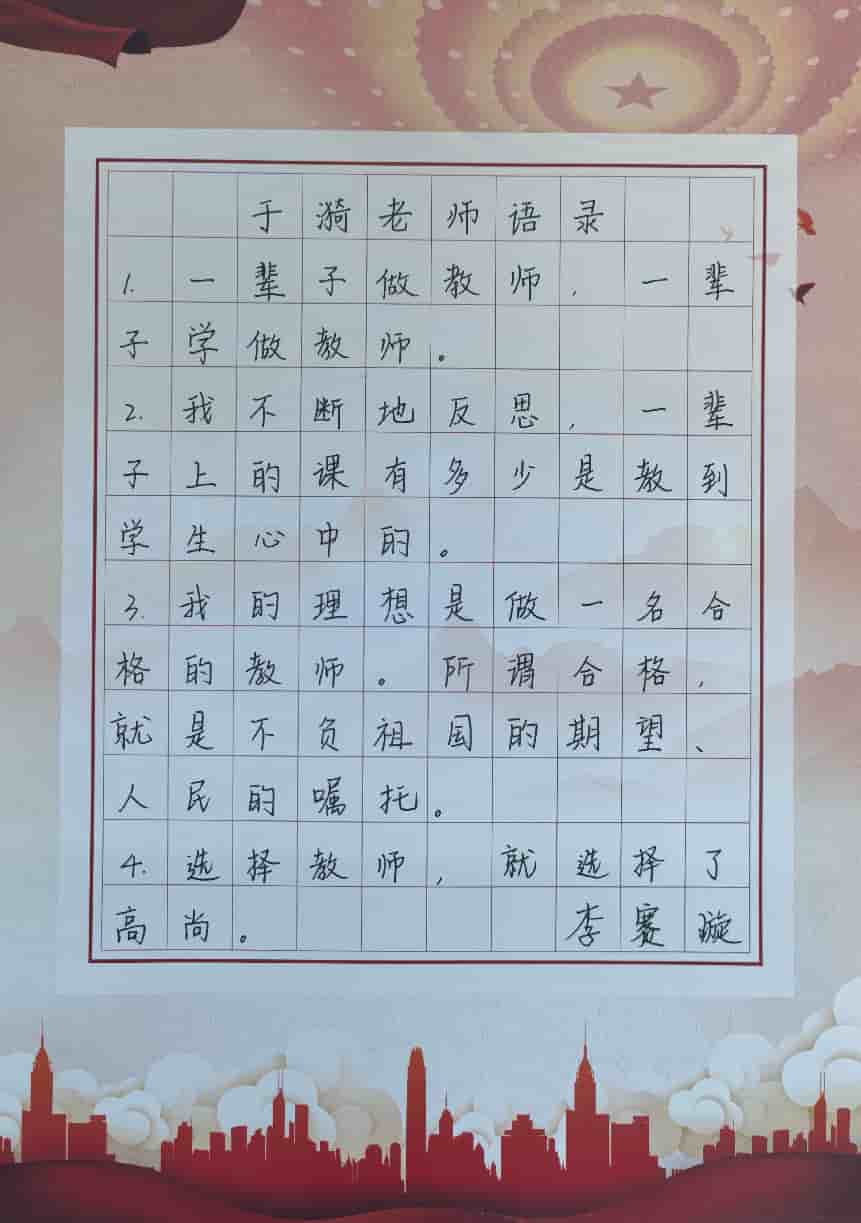 于漪老师语录
1. 一辈子做教师，一辈
子学做教师。
2. 我不断地反思，一辈
子上的课有多少是教到
学生心中的。
3. 我的理想是做一名合
格的教师。所谓合格，
就是不负祖国的期望、
人民的嘱托。
4. 选择教师，就选择了
高尚。 李赛璇